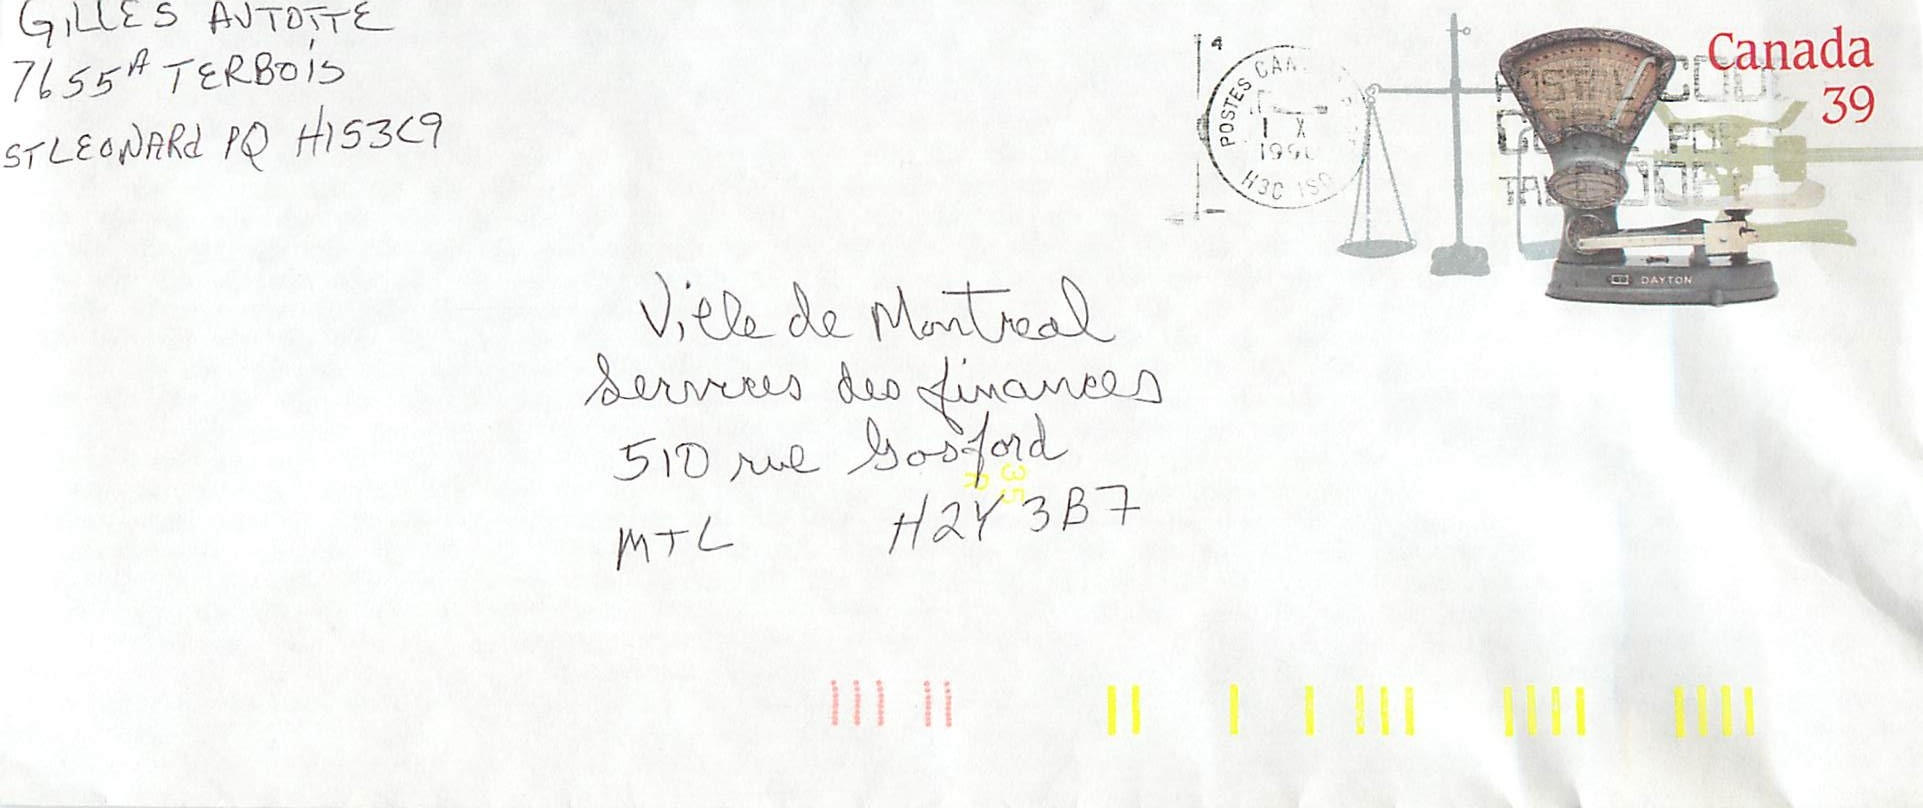 GILLES AUTOTTE
7655A TERBOIS
ST LEONARD PQ H1S3C9
4
Canada
39
POSTES CAN
1 X
H3C 1S0
POSTAL CODE
DAYTON
Ville de Montreal
Services des finances
510 rue Gosford
35
R
MTL H2Y 3B7